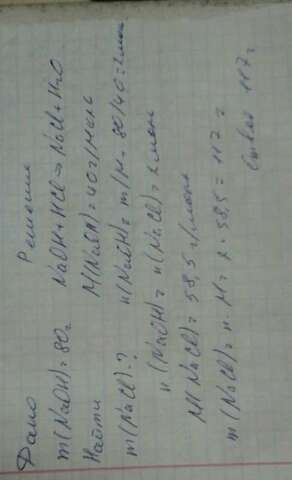 Дано Решение
m(NaOH)=80г NaOH+HCl→NaCl+H₂O
Найти M(NaOH)=40г/моль
m(NaCl)-? n(NaOH)=m/M=80/40=2моль
n(NaOH)=n(NaCl)=2моль
M(NaCl)=58,5г/моль
m(NaCl)=n·M=2·58,5=117г
Ответ 117г